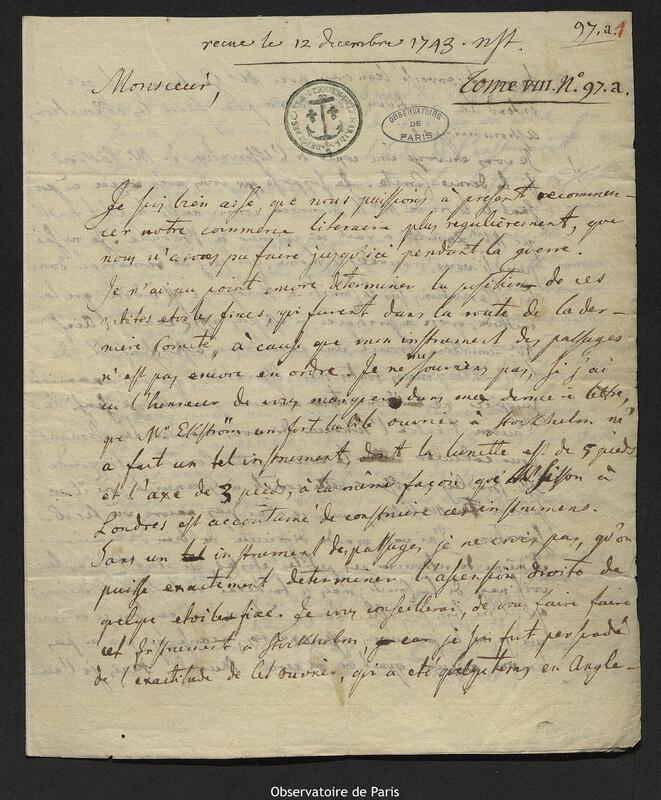 97.a.1
recue le 12 decembre 1743. nst.
Monsieur,
Tome VIII. N.º 97.a.
OBSERVATOIRE
DE
PARIS
Je suis bien aise, que nous puissions à présent recommen-
cer notre commerce literaire plus regulièrement, que
nous n'avons pu faire jusqu'ici pendant la guerre.
Je n'ai pu point encore determiner la position de ces
petites etoiles fixes, qui furent dans la route de la der-
nière Comète, à cause que mon instrument des passages
n'est pas encore en ordre. Je ne me souviens pas, si j'ai
eu l'honneur de vous marquer dans ma derniere lettre,
que Mr. Ekström un fort habile ouvrier à Stockholm m'
a fait un tel instrument dont la lunette est de 5 pieds
et l'axe de 3 pieds, à la même façon que Mr. Sisson à
Londres est accoutumé de construire ces instrumens.
Sans un tel instrument des passages, je ne crois pas, qu'on
puisse exactement determiner l'ascension droite de
quelque etoile fixe. Je vous conseillerai, de vous faire faire
cet instrument à Stockholm, car je suis fort persuadé
de l'exactitude de cet ouvrier, qui a eté quelque tems en Angle-
Observatoire de Paris